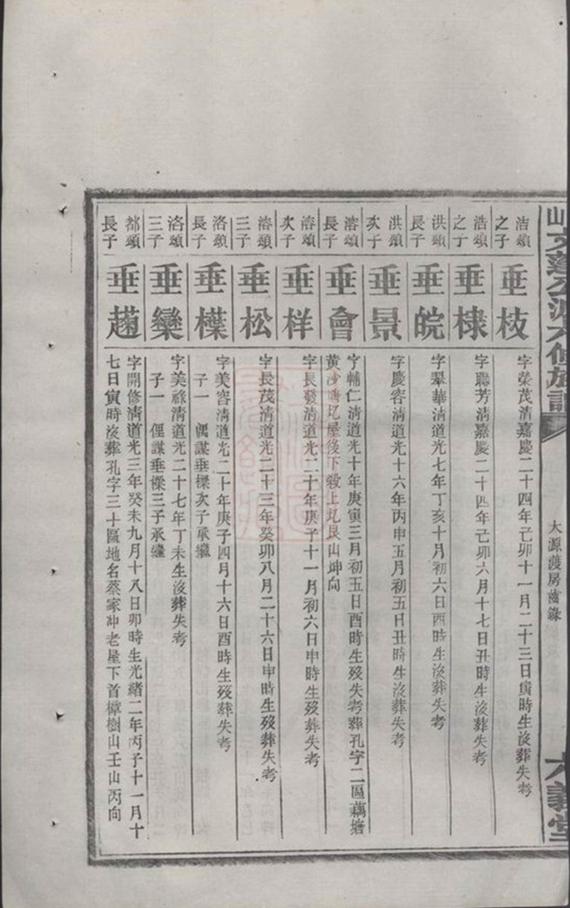 大源護房齒錄
大義堂
浩頌之子
垂枝
字榮茂清嘉慶二十四年己卯十一月二十三日寅時生沒葬失考
浩頌之子
垂棣
字聯芳清嘉慶二十四年己卯六月十七日丑時生沒葬失考
洪頌長子
垂皖
字羣華清道光七年丁亥十月初六日酉時生沒葬失考
洪頌次子
垂景
字慶容清道光十六年丙申五月初五日丑時生沒葬失考
溶頌長子
垂會
字輔仁清道光十年庚寅三月初五日酉時生歿失考葬孔字二區藕塘
黃沙塘圫屋後下殺上圫艮山坤向
溶頌次子
垂样
字長發清道光二十年庚子十一月初六日申時生歿葬失考
溶頌三子
垂松
字長茂清道光二十三年癸卯八月二十六日申時生歿葬失考
洛頌長子
垂檏
字美容清道光二十年庚子四月十六日酉時生歿葬失考
子一 偶謀垂檪次子承繼
洛頌三子
垂欒
字美祿清道光二十七年丁未生沒葬失考
子一 俚謀垂檪三子承繼
都頌長子
垂趙
字開修清道光三年癸未九月十八日卯時生光緒二年丙子十一月十
七日寅時沒葬孔字三十區地名蔡家冲老屋下首樟樹山壬山丙向